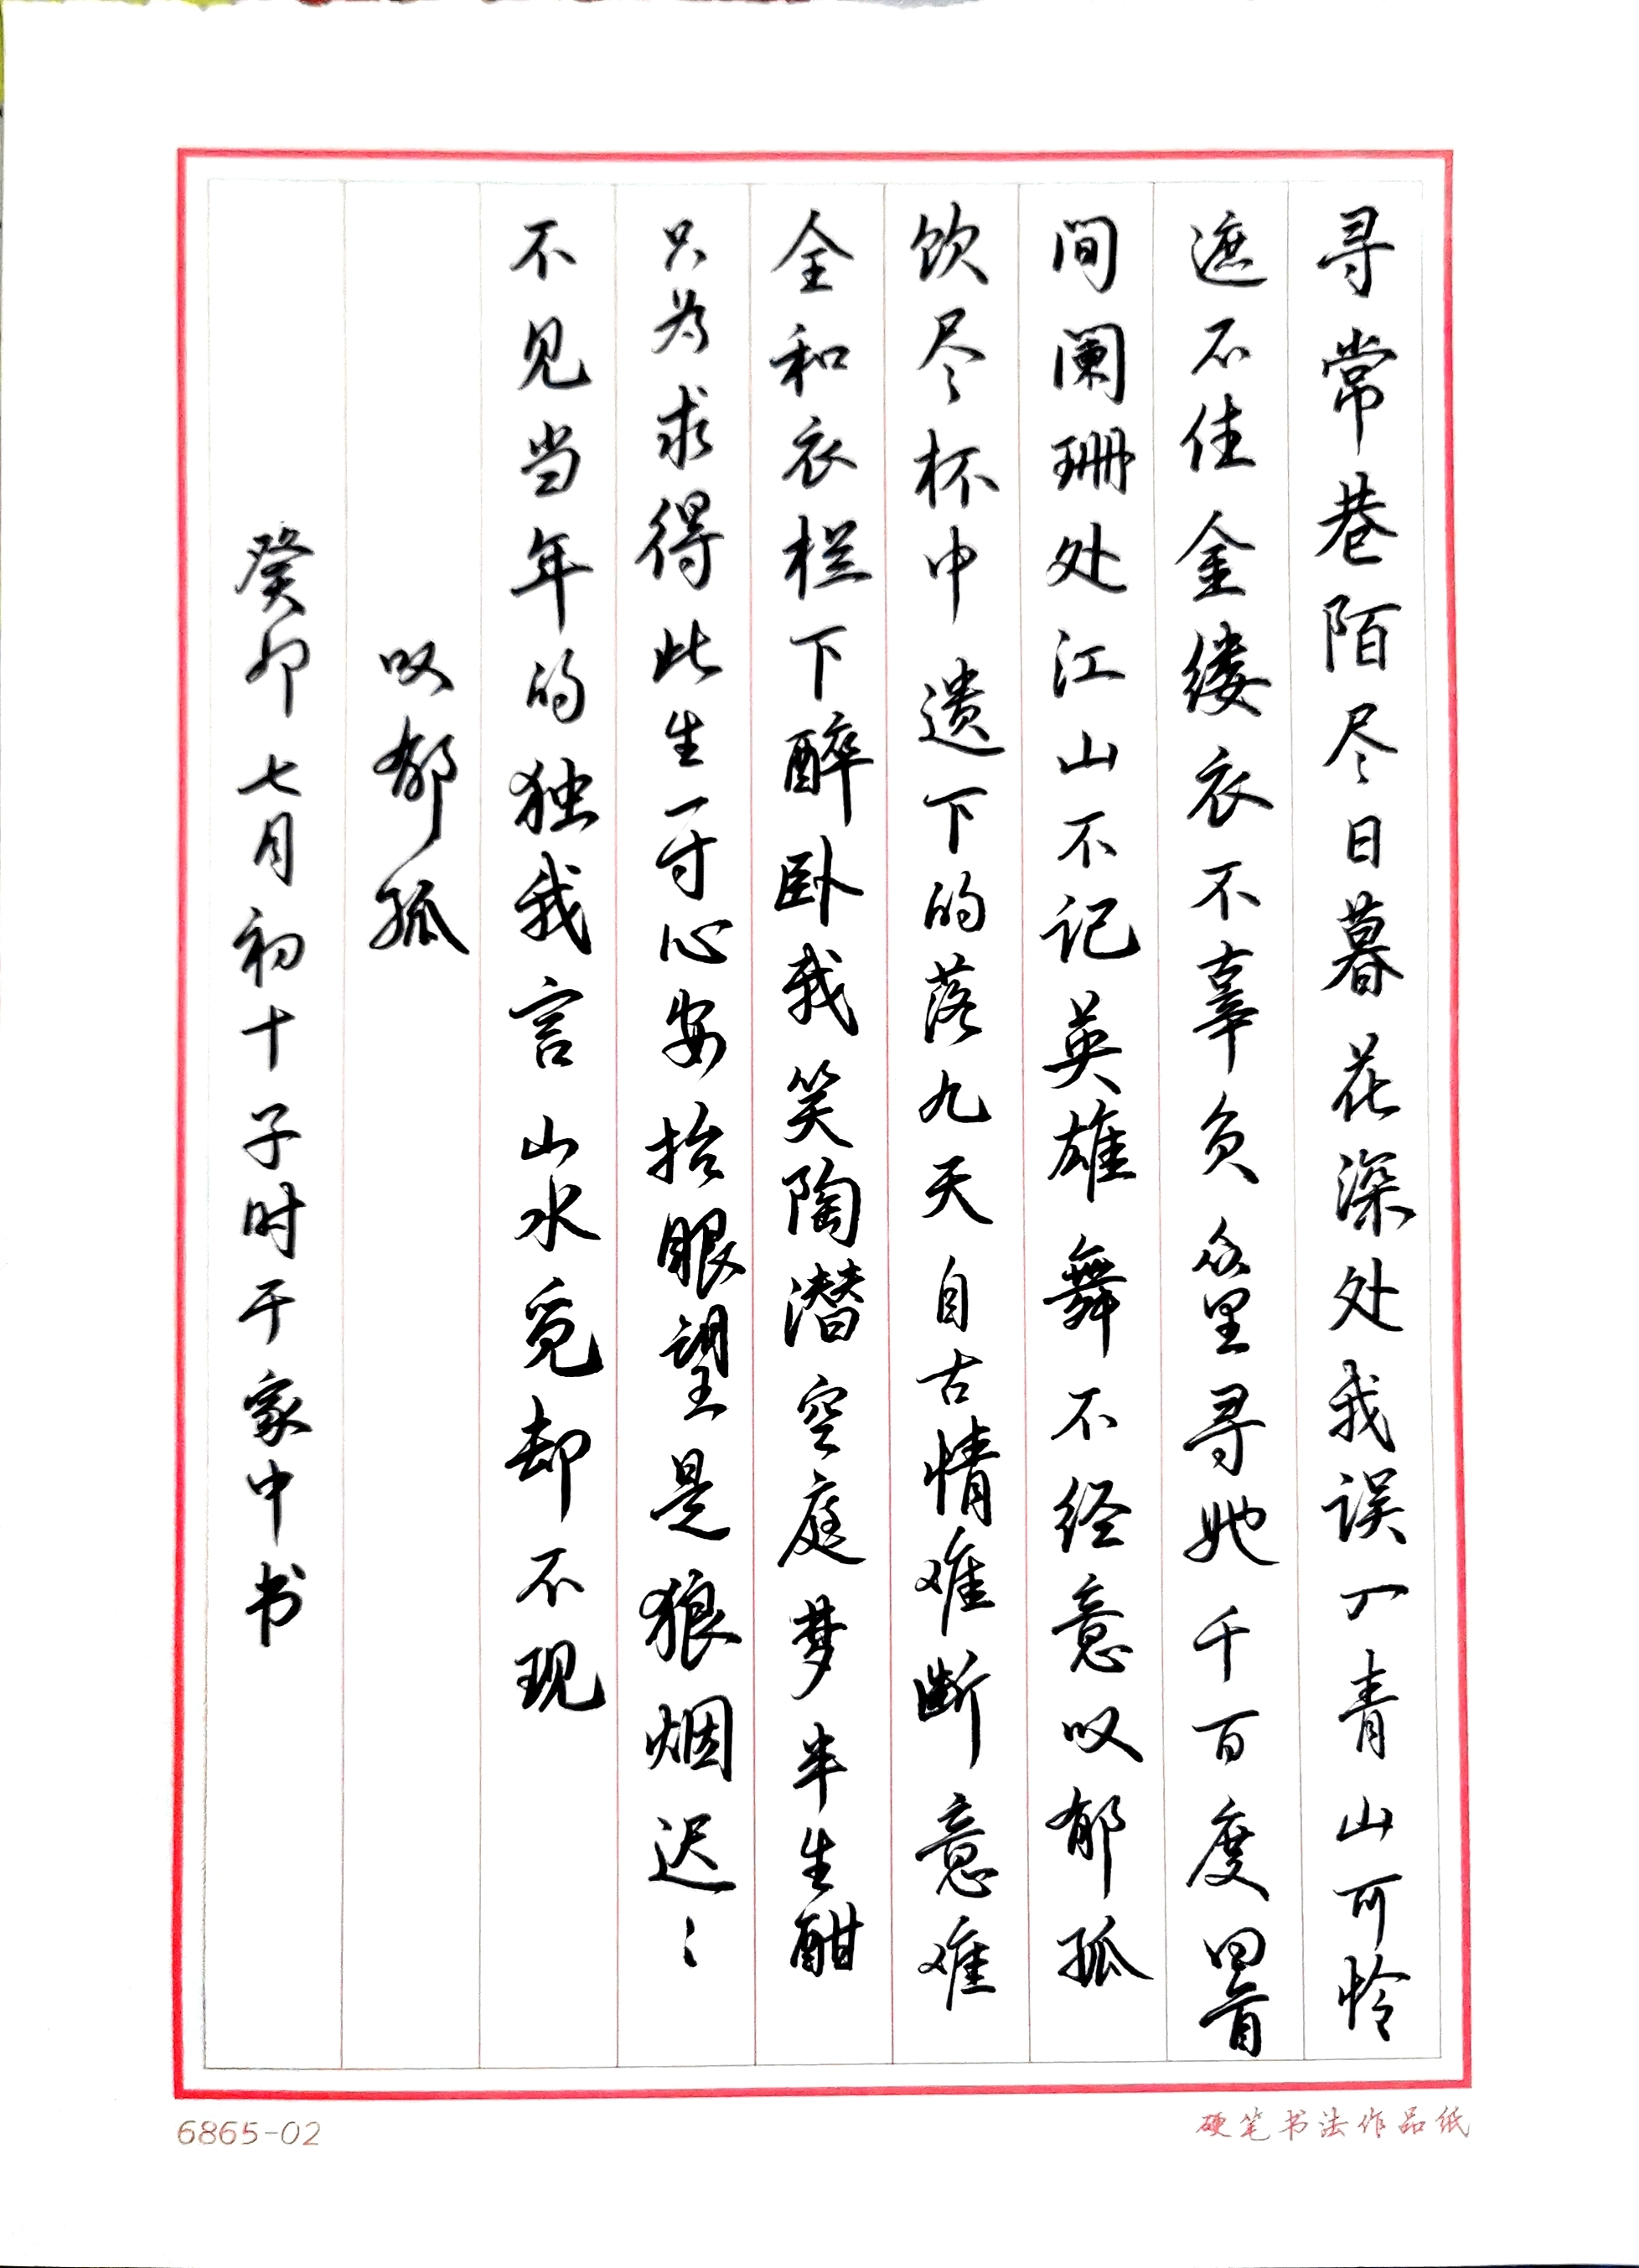 寻常巷陌尽日暮花深处我误入青山可怜
遮不住金缕衣不辜负众里寻她千百度回首
间阑珊处江山不记英雄舞不经意叹郁孤
饮尽杯中遗下的落九天自古情难断意难
全和衣栏下醉卧我笑陶潜空庭梦半生酣
只为求得此生一寸心安抬眼望是狼烟迟々
不见当年的独我言山水觅却不现
叹郁孤
癸卯七月初十子时于家中书
6865-02
硬笔书法作品纸